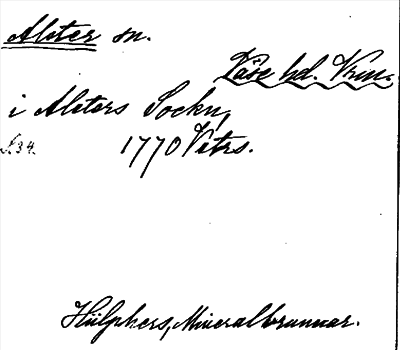 Alster sn.
Väse hd. Vrml.
i Alsters Sockn,
S. 34. 1770 Vetrs.
Hülphers, Mineralbrunnar.